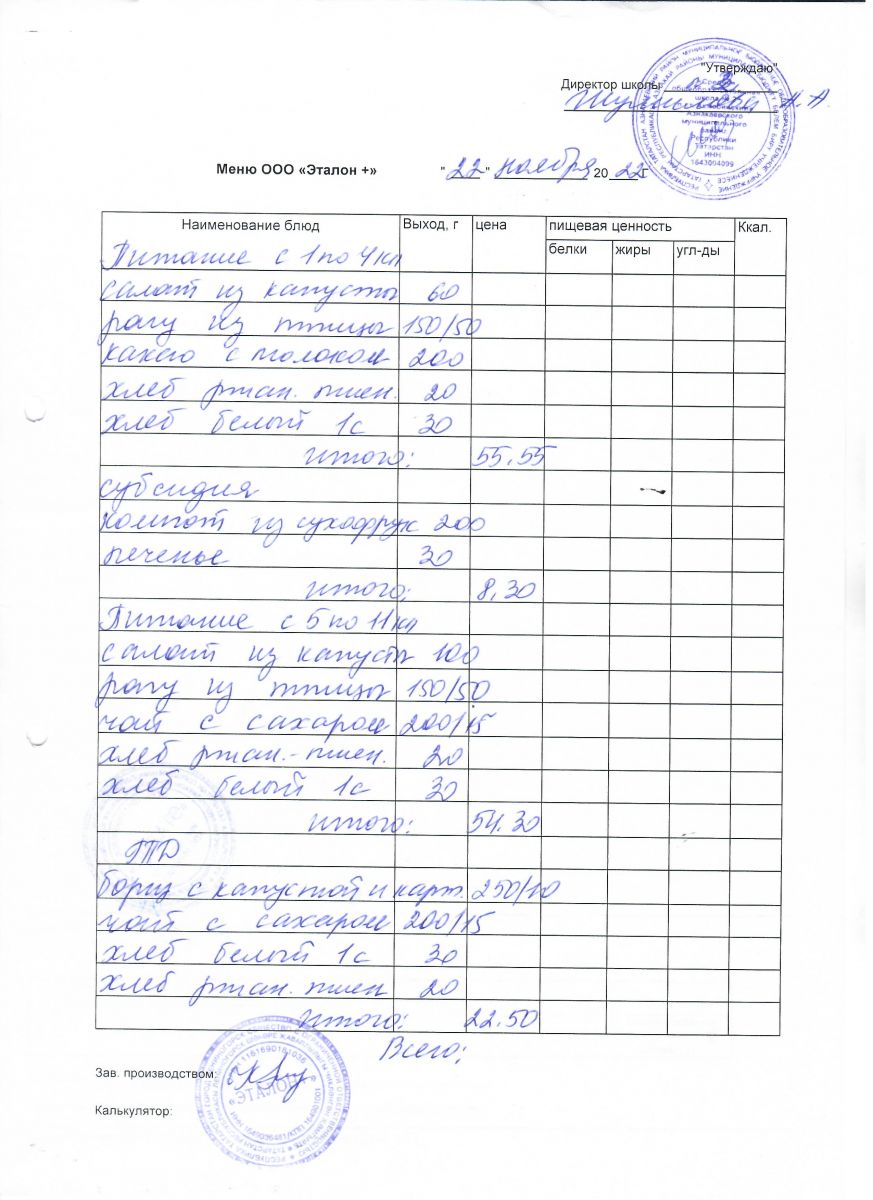 "Утверждаю"
Директор школы
Н. А.
Меню ООО «Эталон +» "22" ноября 2022г
Наименование блюд Выход, г цена пищевая ценность Ккал.
белки жиры угл-ды
Питание с 1 по 4 кл
салат из капусты 60
рагу из птицы 150/50
какао с молоком 200
хлеб ржан. пшен. 20
хлеб белый 1с 30
итого: 55.55
субсидия
компот из сухофрук 200
печенье 30
итого: 8,30
Питание с 5 по 11 кл
салат из капусты 100
рагу из птицы 150/50
чай с сахаром 200/15
хлеб ржан.-пшен. 20
хлеб белый 1с 30
итого: 54.30
ГПД
борщ с капустой и карт. 250/10
чай с сахаром 200/15
хлеб белый 1с 30
хлеб ржан. пшен 20
итого: 22.50
Всего:
Зав. производством:
«ЭТАЛОН
Калькулятор: